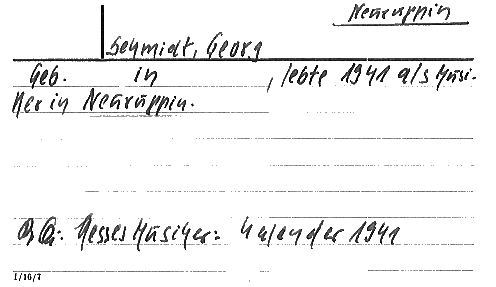 Neuruppin
Schmidt, Georg
Geb. in , lebte 1941 als Musi-
ker in Neuruppin.
Qu: Hesses Musiker-Kalender 1941
1/16/7